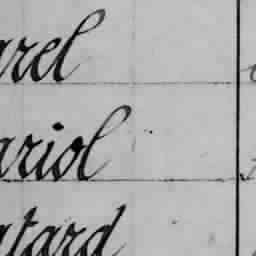 arel
ariol
atard